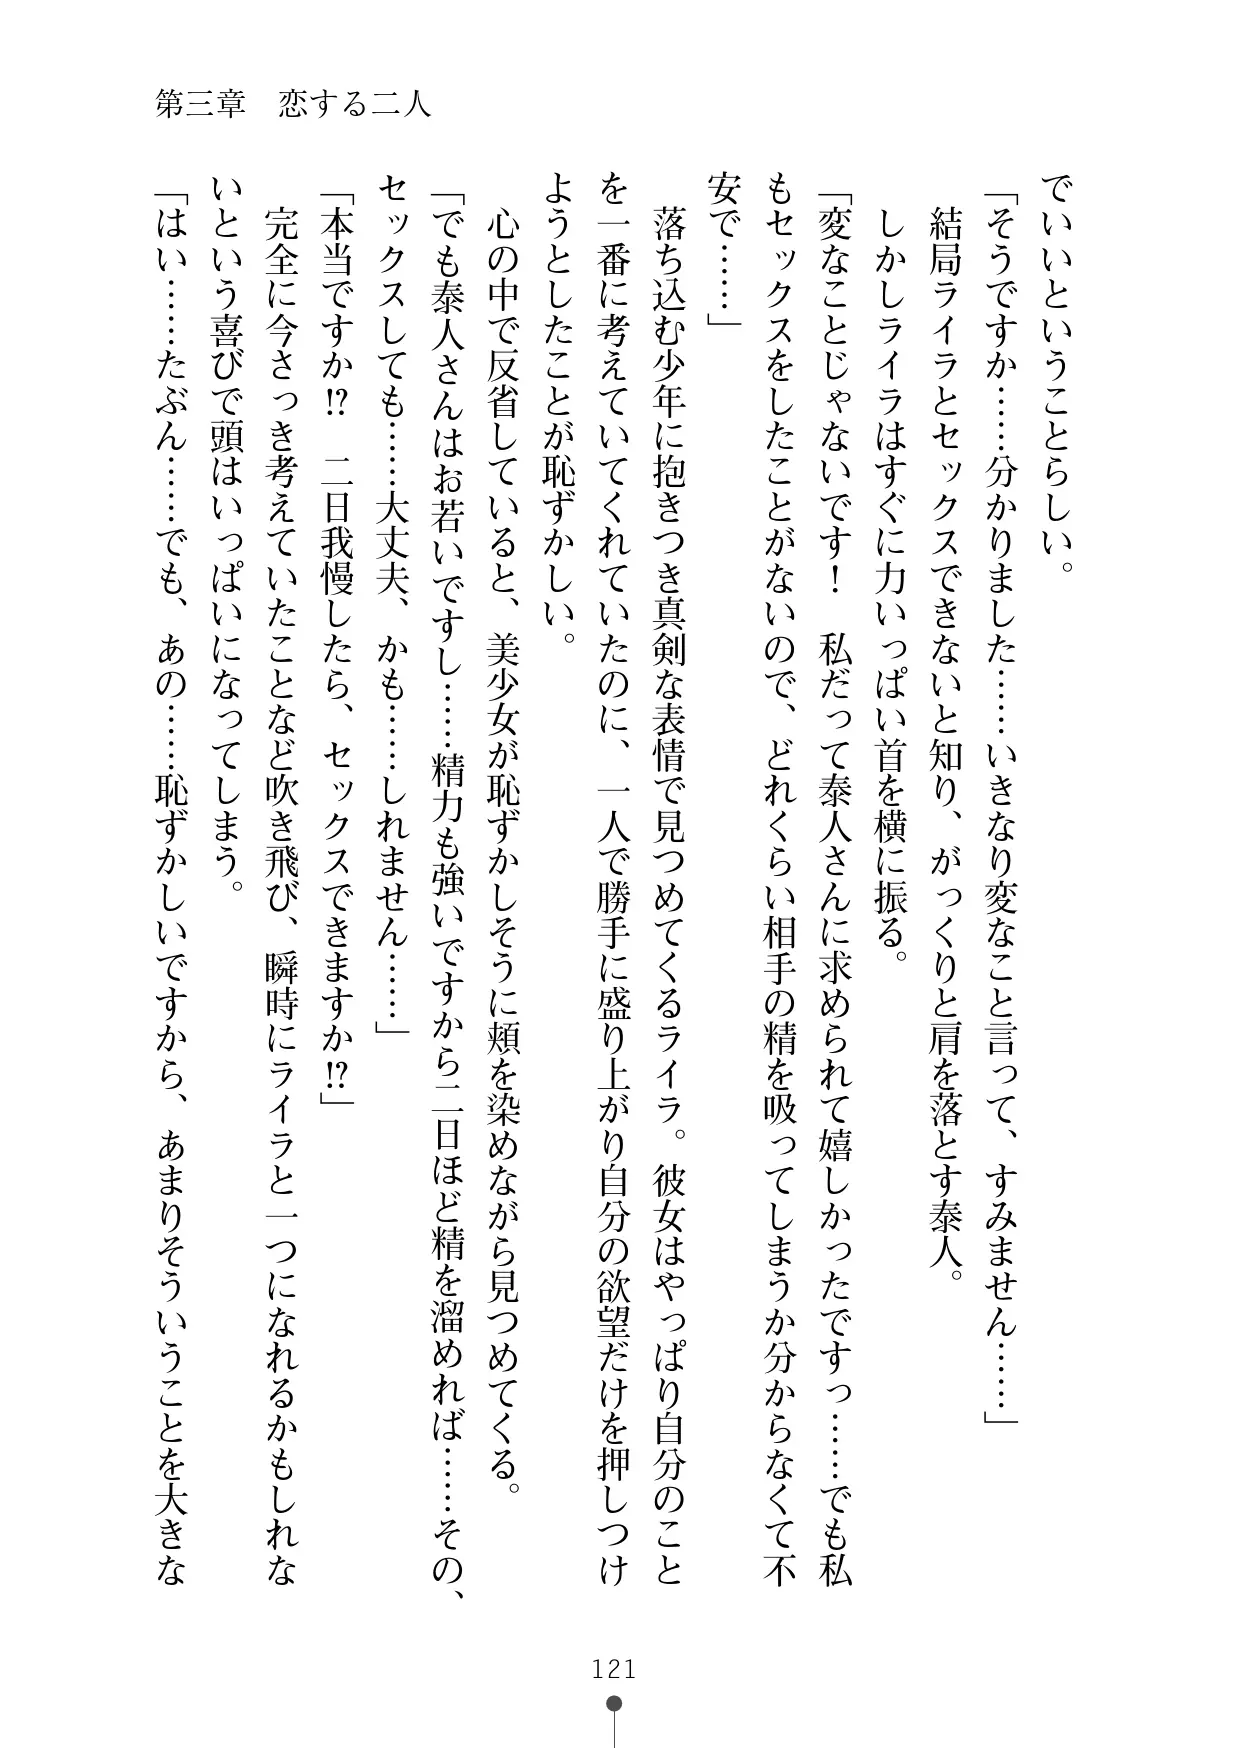 第三章　恋する二人
でいいということらしい。
「そうですか……分かりました……いきなり変なこと言って、すみません……」
　結局ライラとセックスできないと知り、がっくりと肩を落とす泰人。
　しかしライラはすぐに力いっぱい首を横に振る。
「変なことじゃないです！　私だって泰人さんに求められて嬉しかったですっ……でも私
もセックスをしたことがないので、どれくらい相手の精を吸ってしまうか分からなくて不
安で……」
　落ち込む少年に抱きつき真剣な表情で見つめてくるライラ。彼女はやっぱり自分のこと
を一番に考えていてくれていたのに、一人で勝手に盛り上がり自分の欲望だけを押しつけ
ようとしたことが恥ずかしい。
　心の中で反省していると、美少女が恥ずかしそうに頬を染めながら見つめてくる。
「でも泰人さんはお若いですし……精力も強いですから二日ほど精を溜めれば……その、
セックスしても……大丈夫、かも……しれません……」
「本当ですか⁉　二日我慢したら、セックスできますか⁉」
　完全に今さっき考えていたことなど吹き飛び、瞬時にライラと一つになれるかもしれな
いという喜びで頭はいっぱいになってしまう。
「はい……たぶん……でも、あの……恥ずかしいですから、あまりそういうことを大きな
121